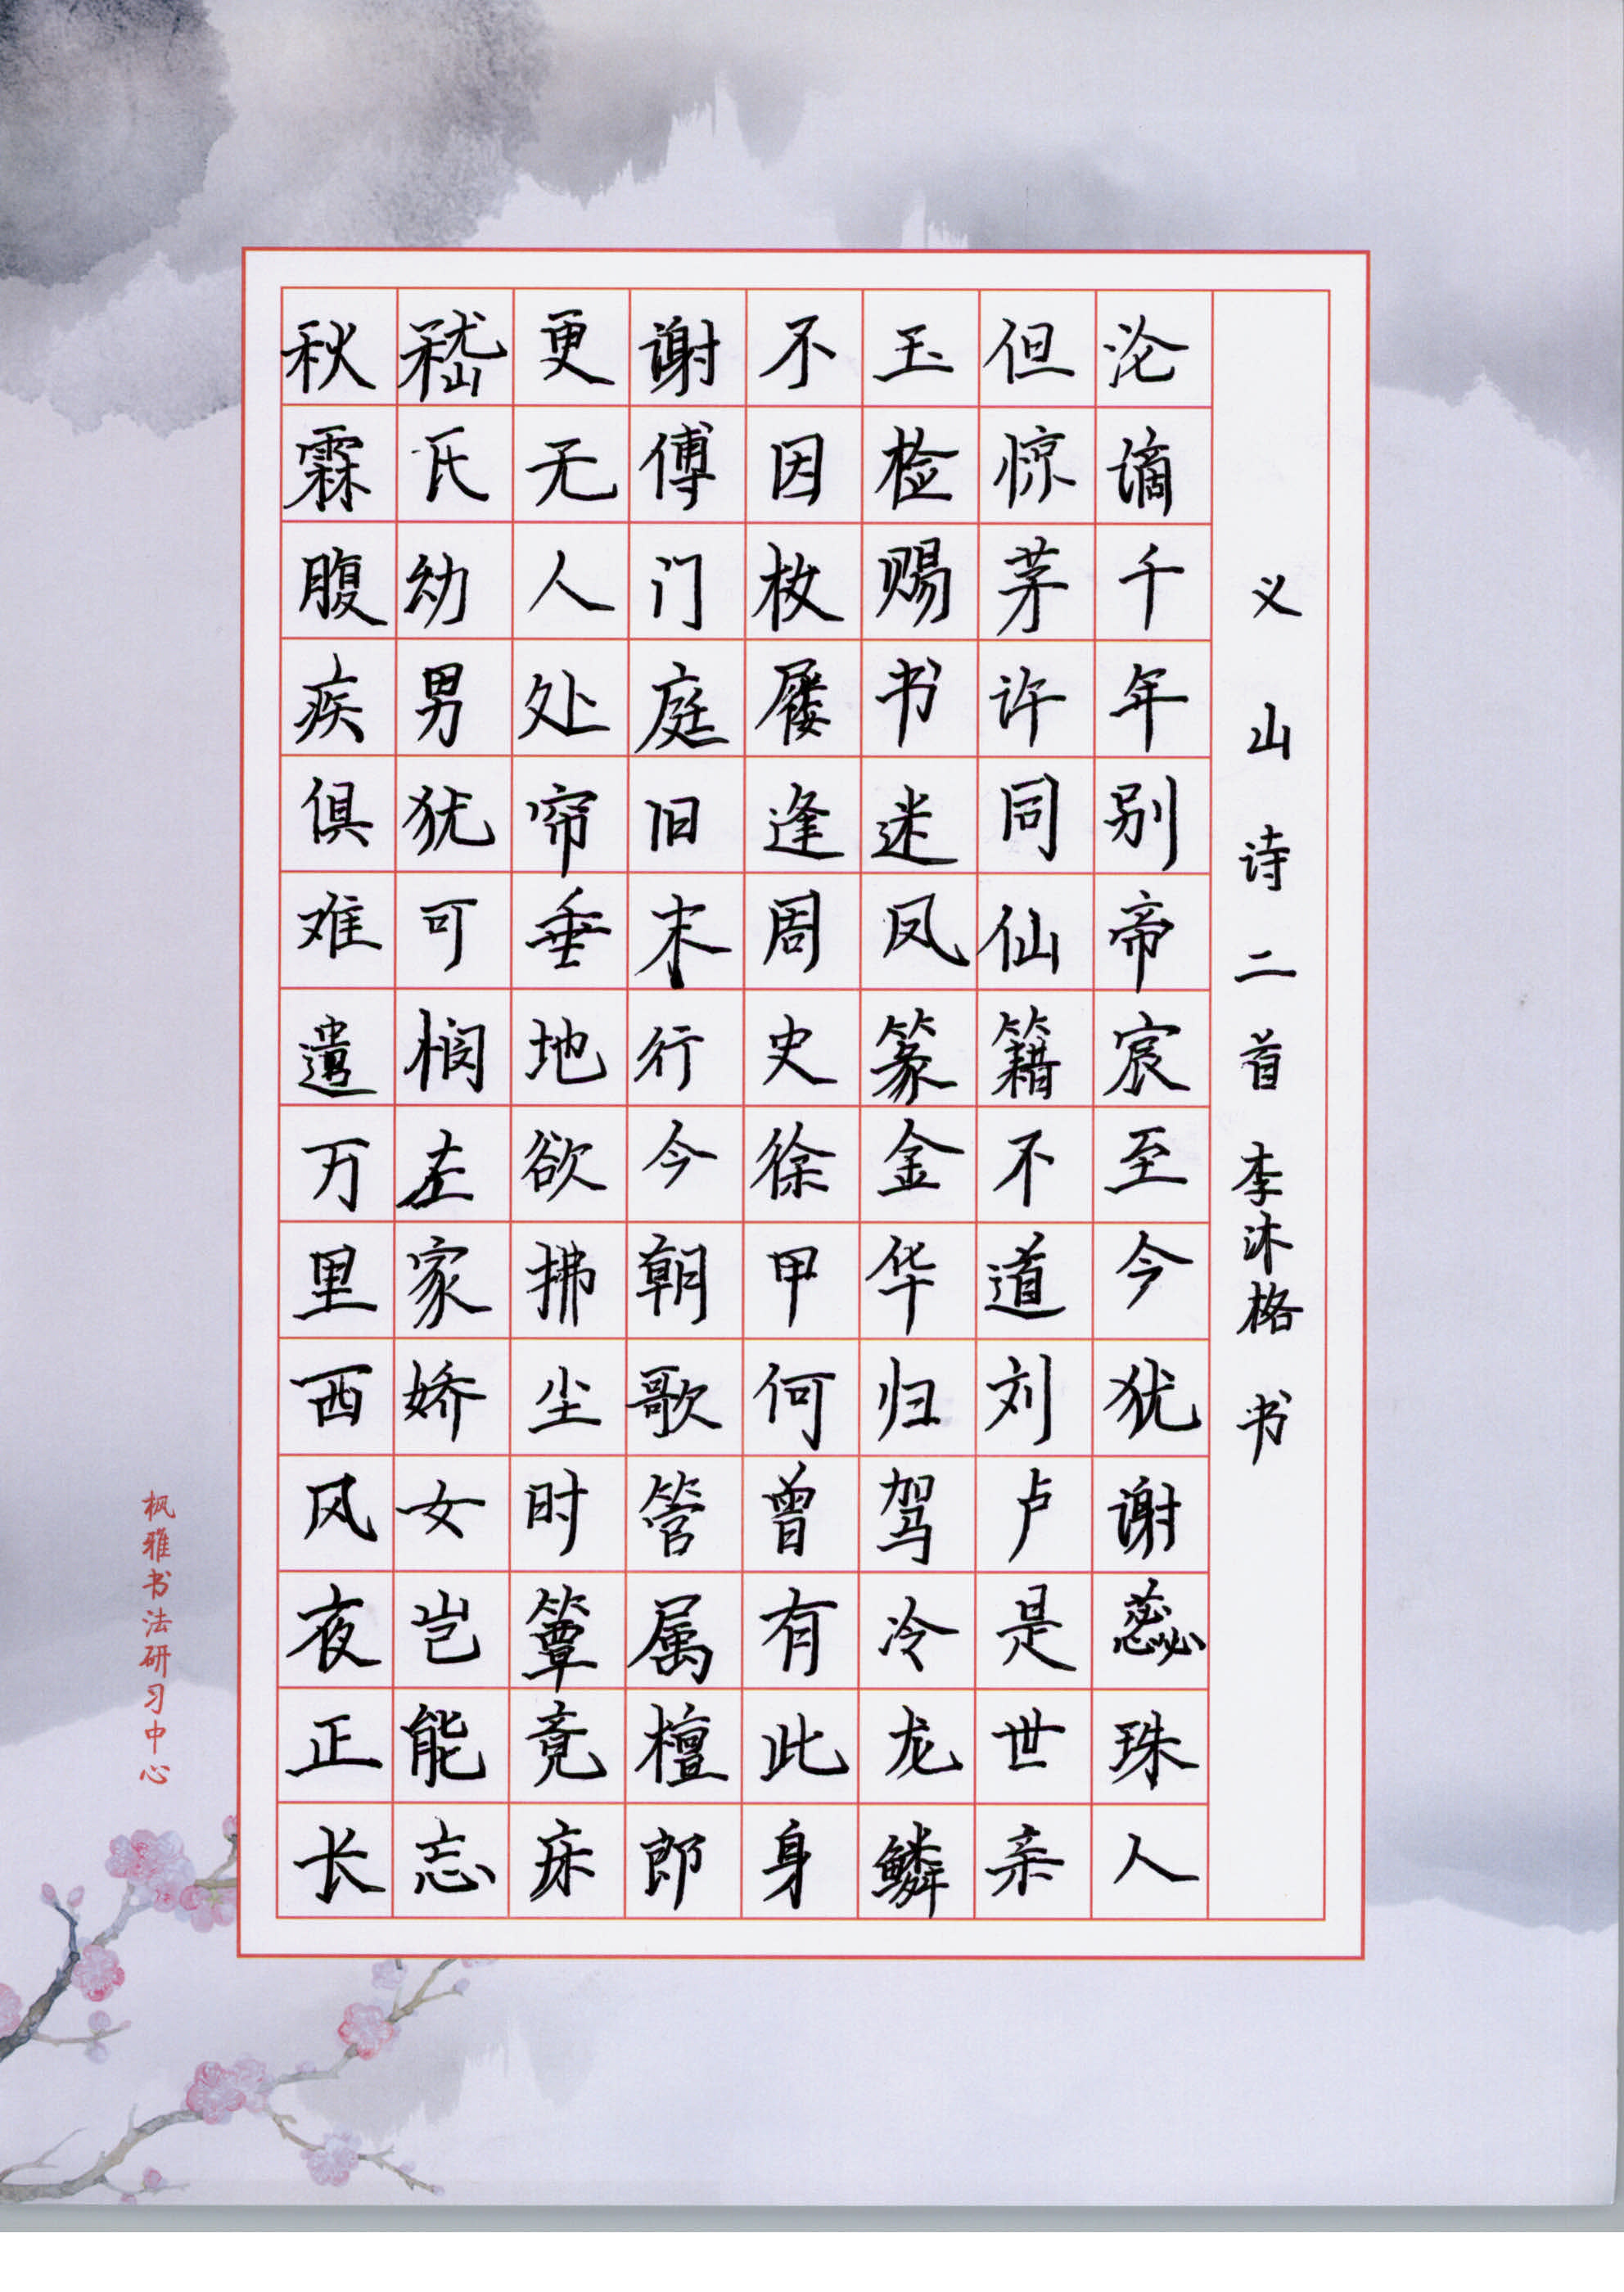 义山诗二首 李沐格 书
沦谪千年别帝宸至今犹谢蕊珠人
但惊茅许同仙籍不道刘卢是世亲
玉检赐书迷凤篆金华归驾冷龙鳞
不因枚屦逢周史徐甲何曾有此身
谢傅门庭旧末行今朝歌管属檀郎
更无人处帘垂地欲拂尘时簟竟床
嵇氏幼男犹可悯左家娇女岂能忘
秋霖腹疾俱难遣万里西风夜正长
枫雅书法研习中心